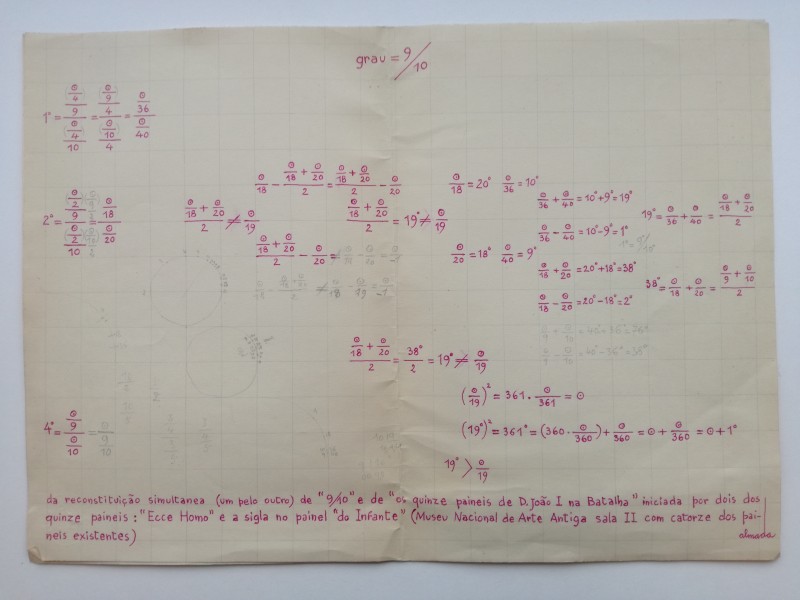 grau = 9/10
1° = ((ʘ/4)/9)/((ʘ/4)/10) = ((ʘ/9)/4)/((ʘ/10)/4) = (ʘ/36)/(ʘ/40)
2° = ((ʘ/2)/9)/((ʘ/2)/10) = (ʘ/18)/(ʘ/20)
(ʘ/18 + ʘ/20)/2 ≠ ʘ/19
ʘ/18 − (ʘ/18 + ʘ/20)/2 = (ʘ/18 + ʘ/20)/2 − ʘ/20
(ʘ/18 + ʘ/20)/2 = 19° ≠ ʘ/19
(ʘ/18 + ʘ/20)/2 − ʘ/20 =
ʘ/18 = 20° ʘ/36 = 10°
ʘ/36 + ʘ/40 = 10° + 9° = 19°
ʘ/36 − ʘ/40 = 10° − 9° = 1°
19° = ʘ/36 + ʘ/40 = (ʘ/18 + ʘ/20)/2
ʘ/20 = 18° ʘ/40 = 9°
ʘ/18 + ʘ/20 = 20° + 18° = 38°
ʘ/18 − ʘ/20 = 20° − 18° = 2°
38° = ʘ/18 + ʘ/20 = (ʘ/9 + ʘ/10)/2
(ʘ/18 + ʘ/20)/2 = 38°/2 = 19° ≠ ʘ/19
(ʘ/19)² = 361 · ʘ/361 = ʘ
(19°)² = 361° = (360 · ʘ/360) + ʘ/360 = ʘ + ʘ/360 = ʘ + 1°
19° > ʘ/19
4° = (ʘ/9)/(ʘ/10)
da reconstituição simultanea (um pelo outro) de "9/10" e de "os quinze paineis de D. João I na Batalha" iniciada por dois dos
quinze paineis: "Ecce Homo" e a sigla no painel "do Infante" (Museu Nacional de Arte Antiga sala II com catorze dos pai-
neis existentes)
almada